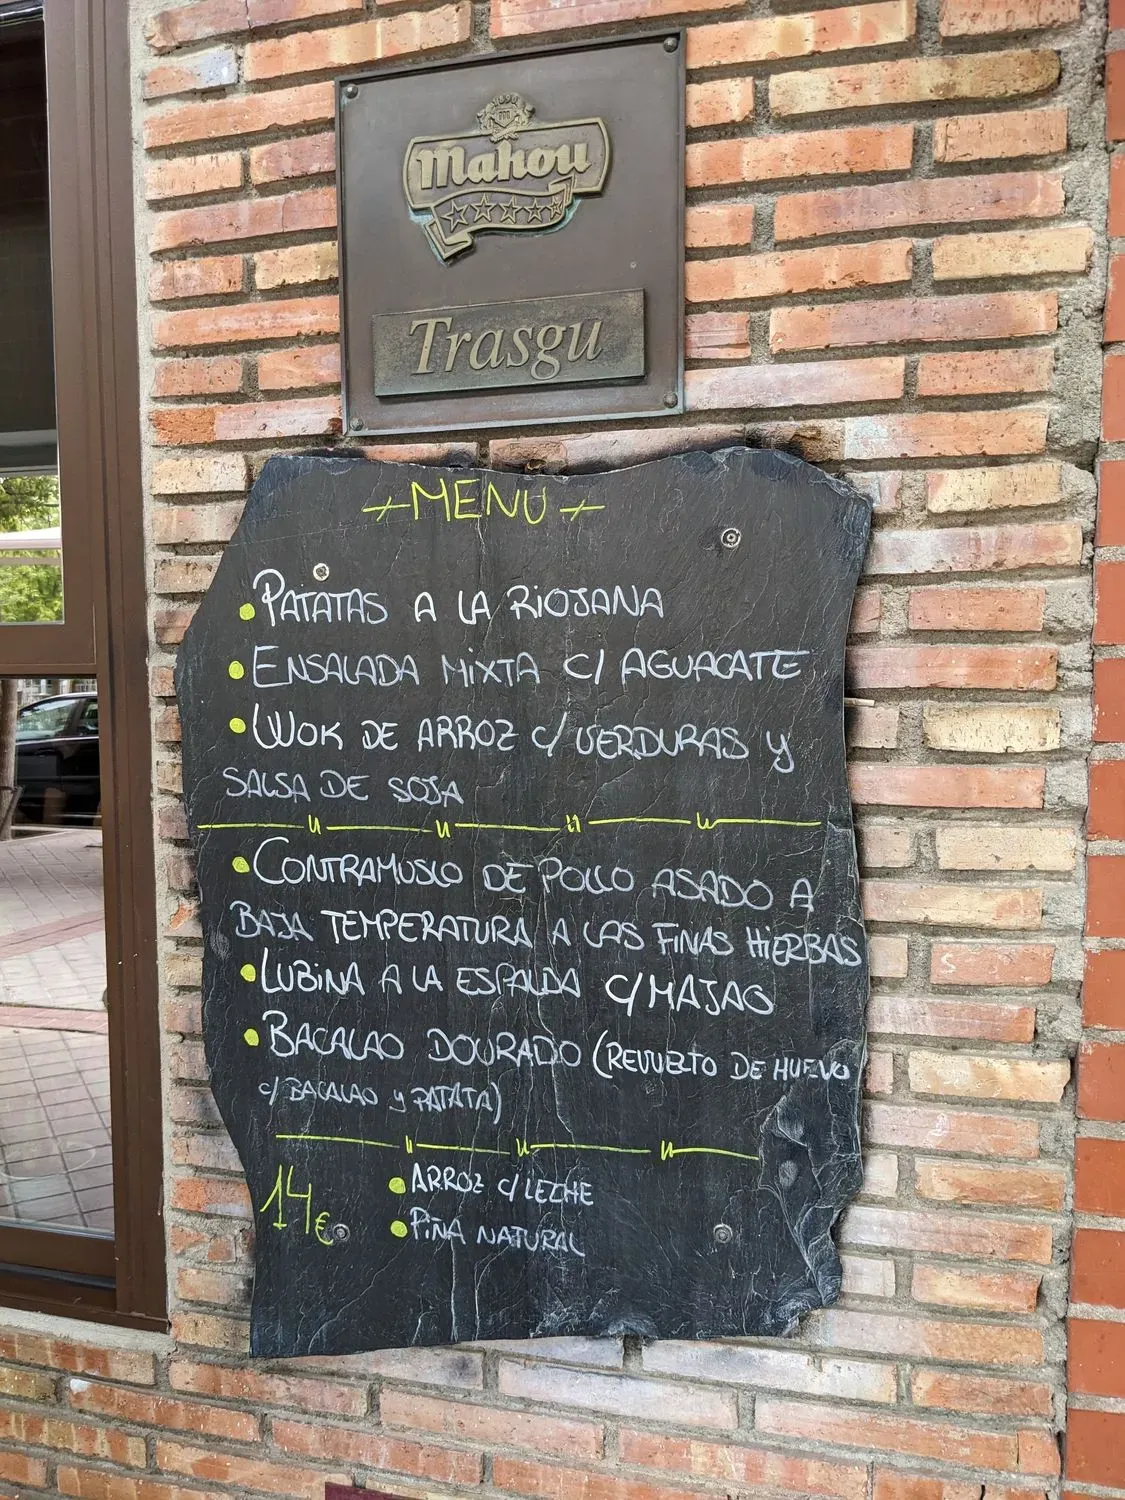 1890
Mahou
Trasgu
MENU
• PATATAS A LA RIOJANA
• ENSALADA MIXTA C/ AGUACATE
• WOK DE ARROZ C/ VERDURAS Y
SALSA DE SOJA
• CONTRAMUSLO DE POLLO ASADO A
BAJA TEMPERATURA A LAS FINAS HIERBAS
• LUBINA A LA ESPALDA C/MAJAO
• BACALAO DOURADO (REVUELTO DE HUEVO
C/ BACALAO Y PATATA)
• ARROZ C/ LECHE
14€
• PIÑA NATURAL